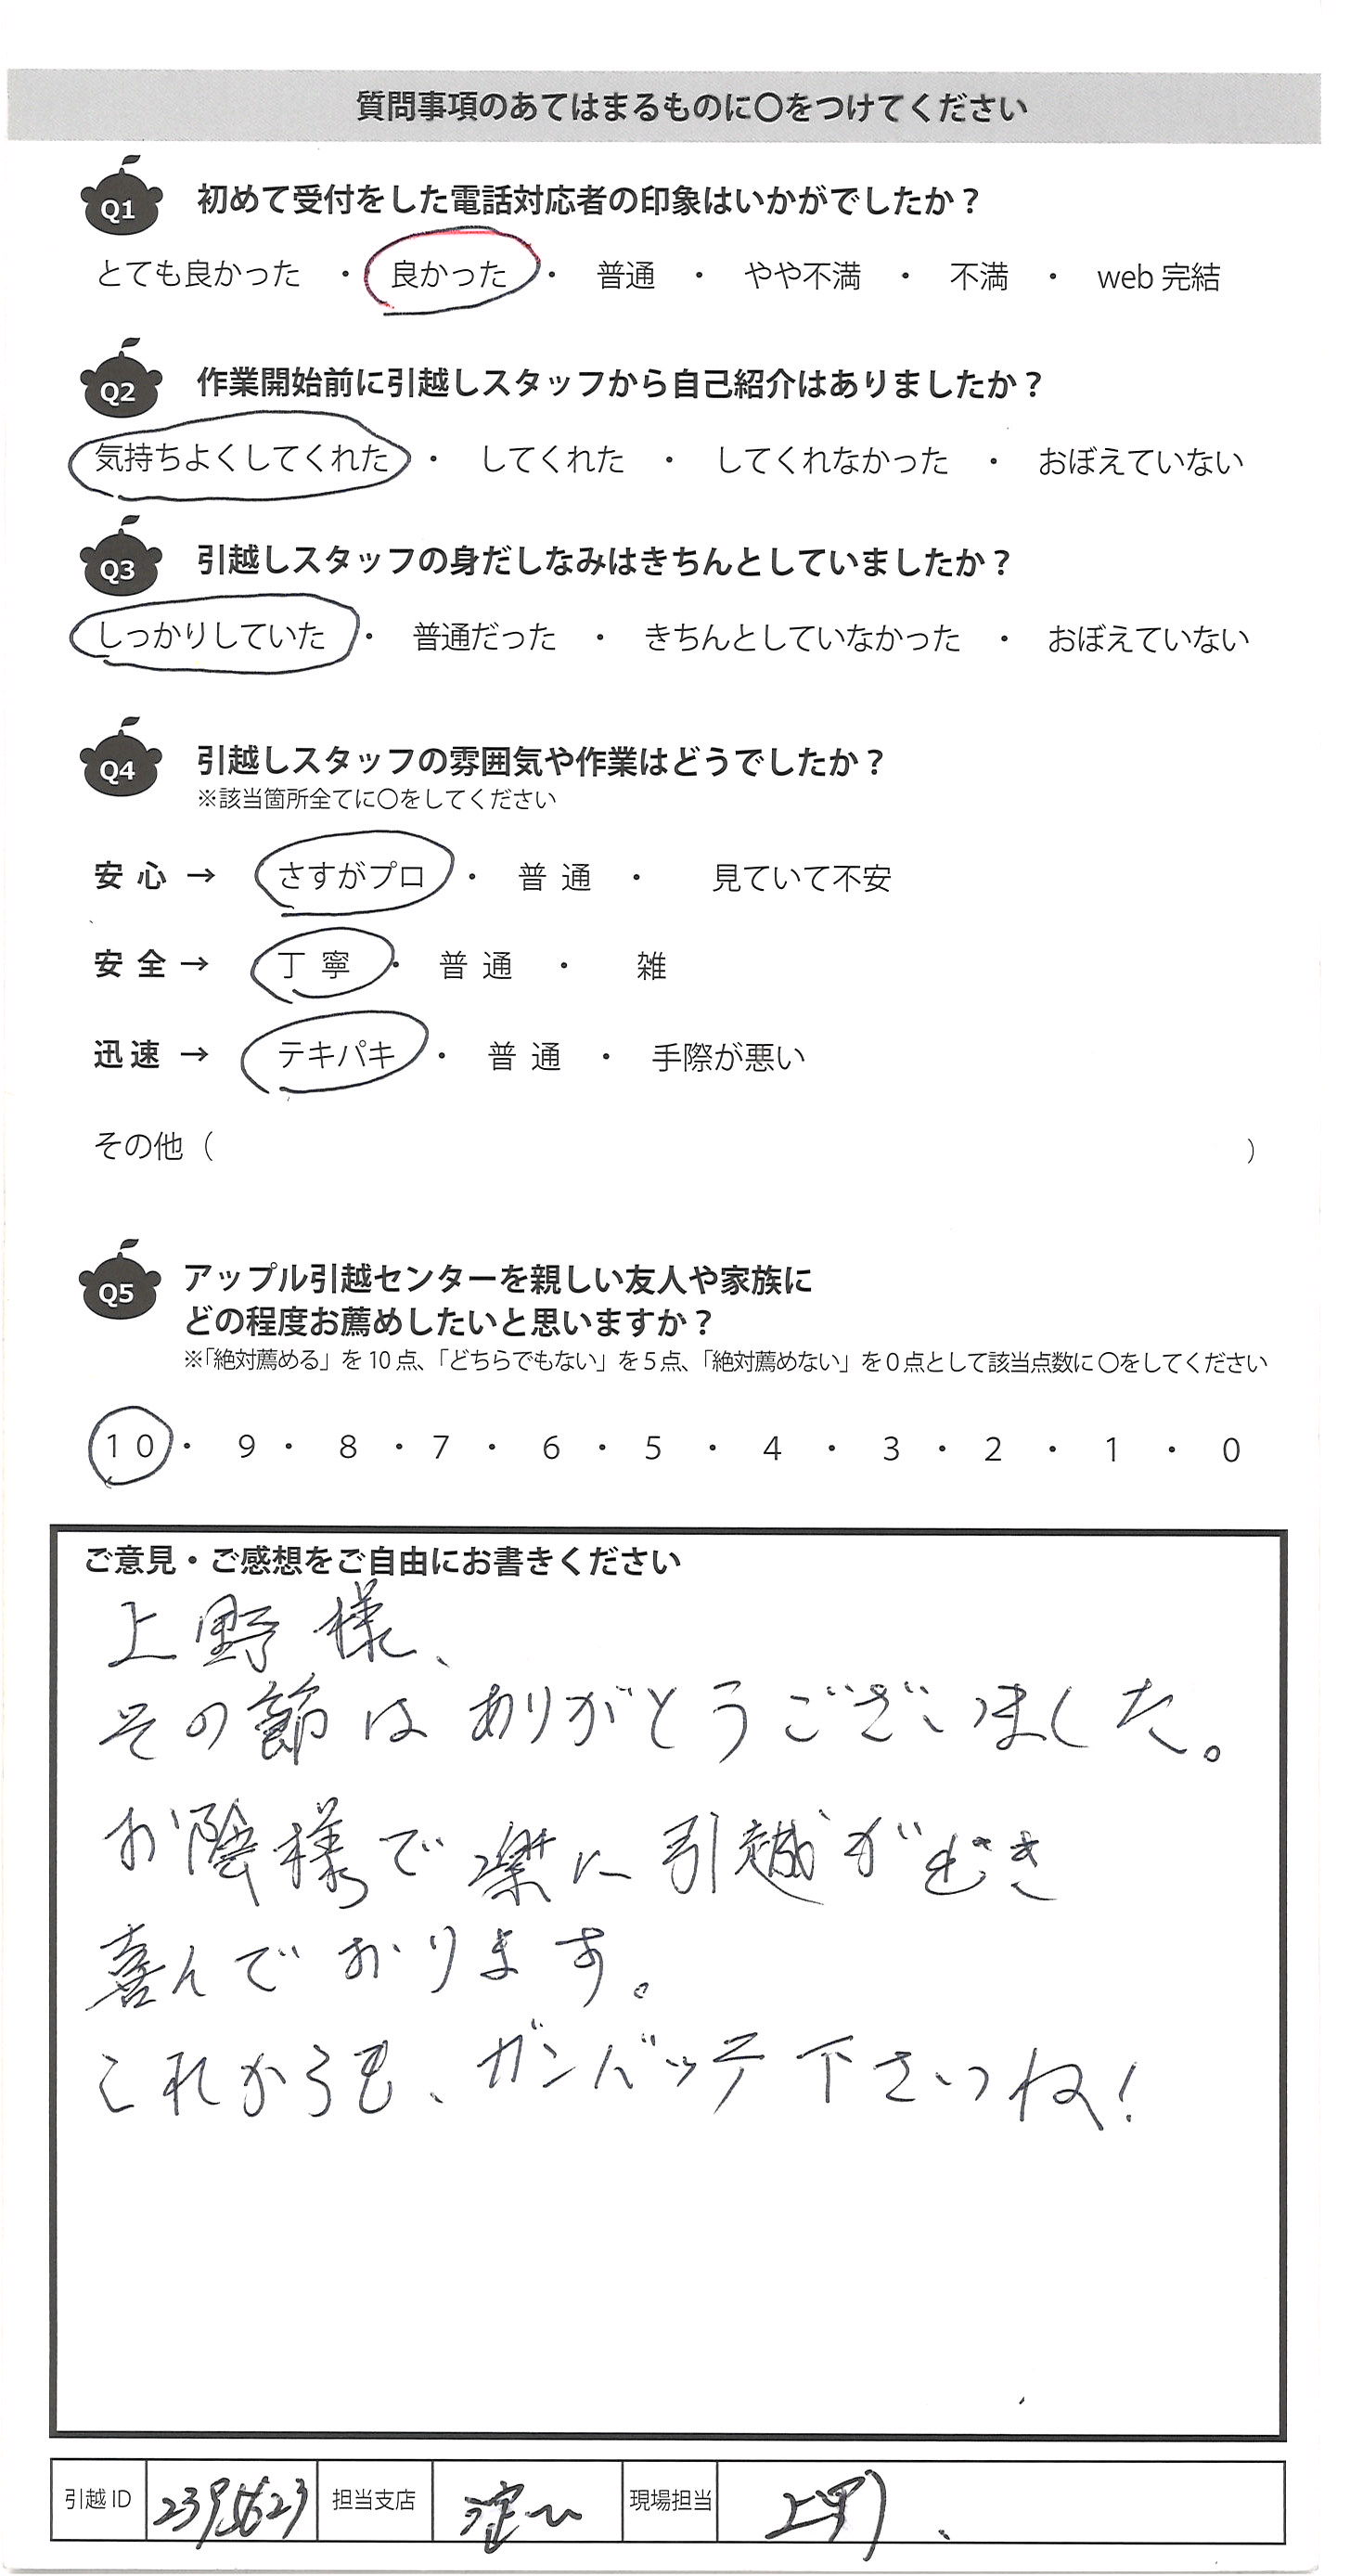 質問事項のあてはまるものに〇をつけてください
Q1 初めて受付をした電話対応者の印象はいかがでしたか？
とても良かった ・ 良かった ・ 普通 ・ やや不満 ・ 不満 ・ web 完結
Q2 作業開始前に引越しスタッフから自己紹介はありましたか？
気持ちよくしてくれた ・ してくれた ・ してくれなかった ・ おぼえていない
Q3 引越しスタッフの身だしなみはきちんとしていましたか？
しっかりしていた ・ 普通だった ・ きちんとしていなかった ・ おぼえていない
Q4 引越しスタッフの雰囲気や作業はどうでしたか？
※該当箇所全てに〇をしてください
安心 → さすがプロ ・ 普通 ・ 見ていて不安
安全 → 丁寧 ・ 普通 ・ 雑
迅速 → テキパキ ・ 普通 ・ 手際が悪い
その他（ ）
Q5 アップル引越センターを親しい友人や家族に
どの程度お薦めしたいと思いますか？
※「絶対薦める」を 10 点、「どちらでもない」を 5 点、「絶対薦めない」を 0 点として該当点数に 〇をしてください
10 ・ 9 ・ 8 ・ 7 ・ 6 ・ 5 ・ 4 ・ 3 ・ 2 ・ 1 ・ 0
ご意見・ご感想をご自由にお書きください
上野様、
その節はありがとうございました。
お陰様で楽に引越ができ
喜んでおります。
これからも、ガンバッテ下さいね！
引越 ID 2395623 担当支店 現場担当 上野